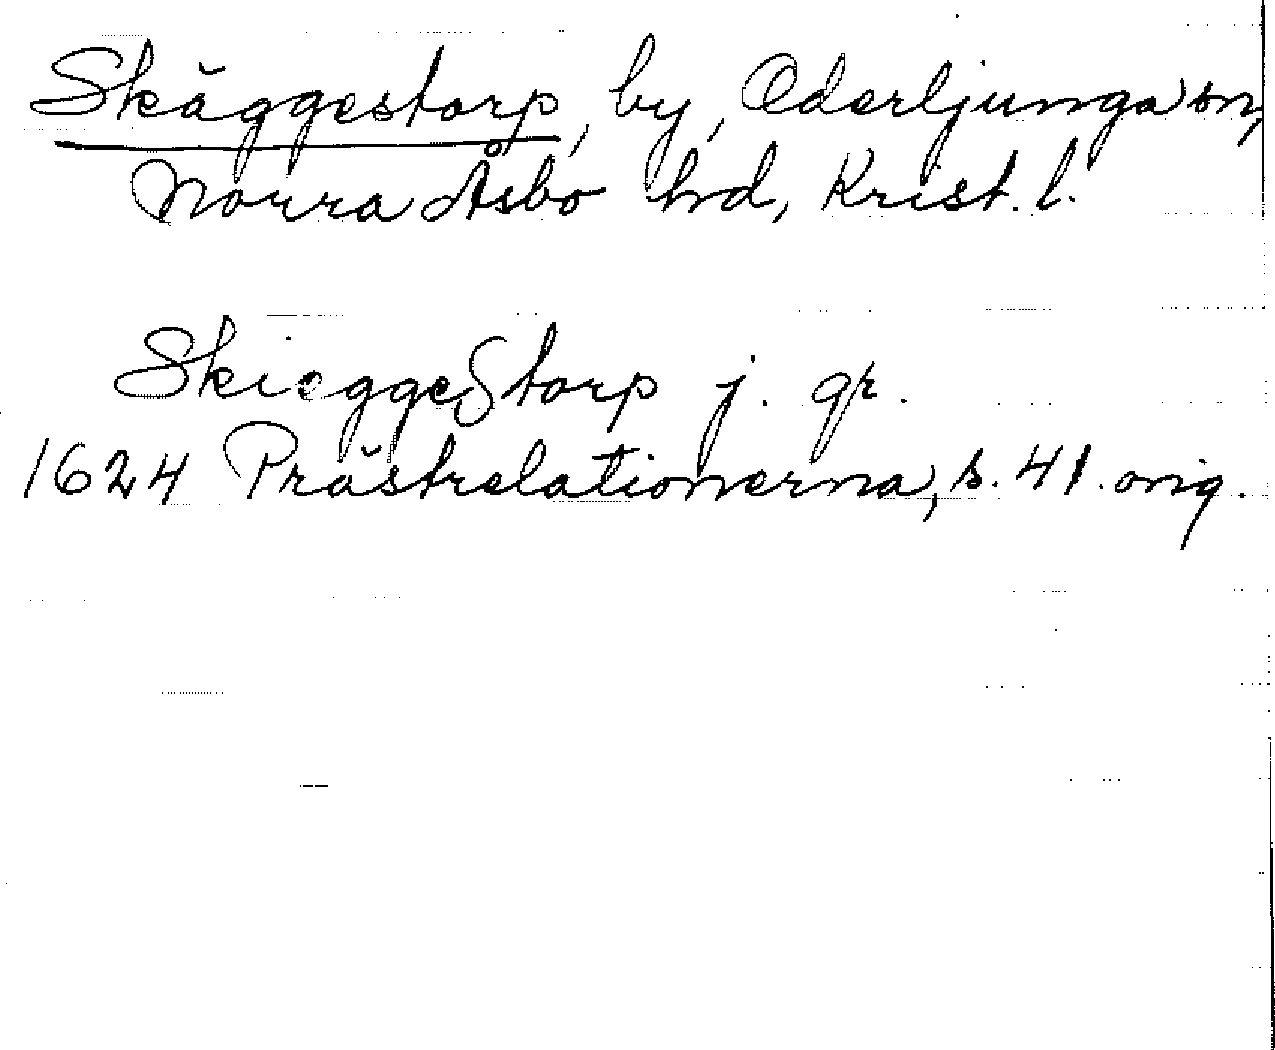 Skäggestorp, by, Oderljunga sn,
Norra Åsbo hd, Krist. l.
SkieggeStorp j. gr.
1624 Prästrelationerna, s. 41. orig.